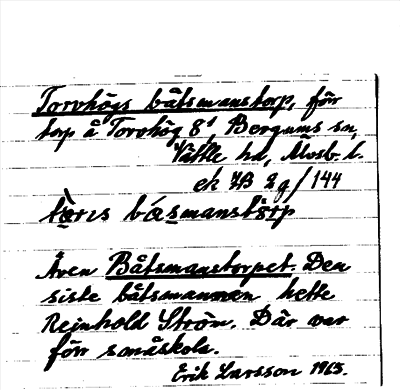 Torvhögs båtsmanstorp, förr
torp å Torvhög 8¹, Bergums sn,
Vättle hd, Älvsb. l.
ek 7B 2g/144
tⱥ̀rıs bǻsmanstårp
Även Båtsmanstorpet. Den
siste båtsmannen hette
Rejnhold Ström. Där var
förr småskola.
Erik Larsson 1963.